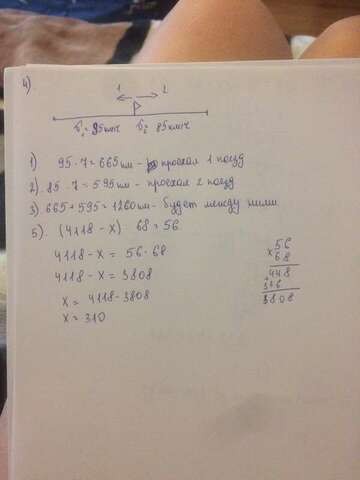 4)
1 2
v₁ = 95км/ч v₂ = 85км/ч
1) 95 · 7 = 665 км - проехал 1 поезд
2) 85 · 7 = 595 км - проехал 2 поезд
3) 665 + 595 = 1260 км - будет между ними
5) (4118 - x) 68 = 56
4118 - x = 56 · 68
4118 - x = 3808
x = 4118 - 3808
x = 310
56
× 68
448
336
3808